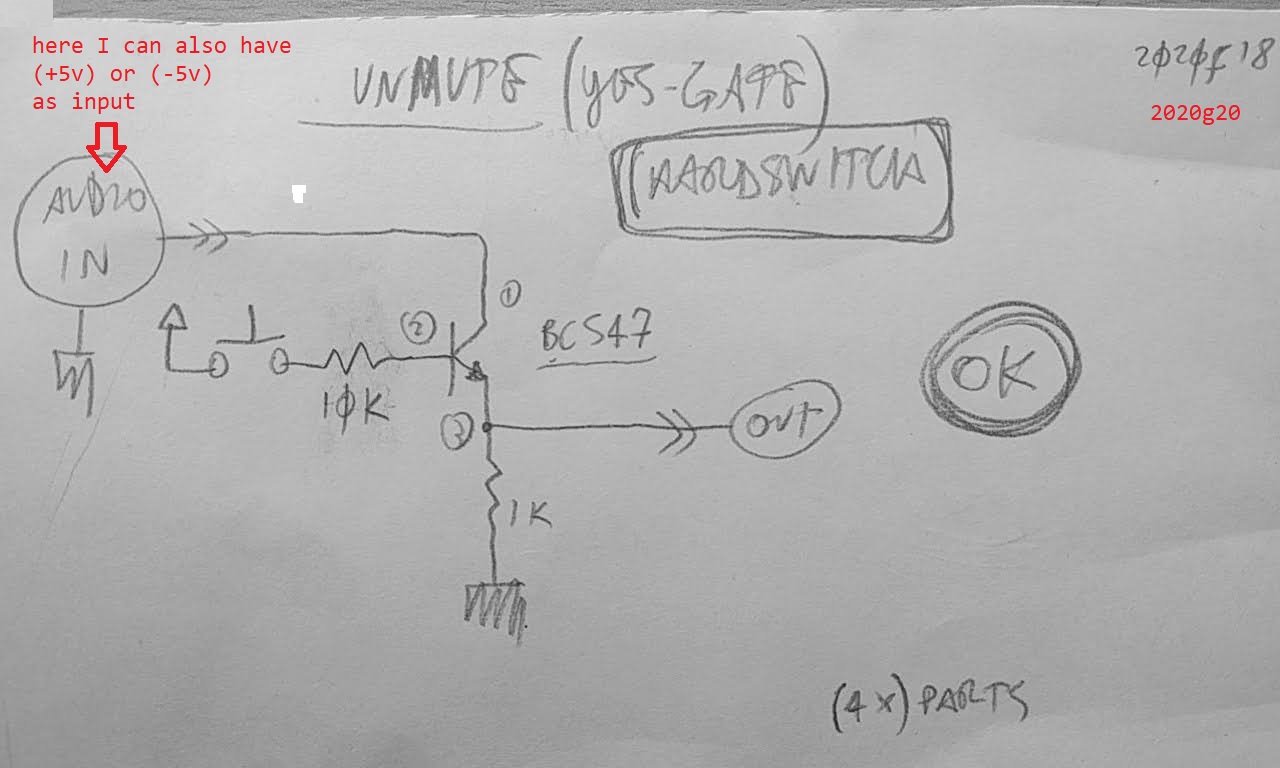 here I can also have
(+5v) or (-5v)
as input
UNMUTE (YES-GATE)
2020f18
2020g20
HARDSWITCH
AUDIO
IN
1
2
BC547
10K
3
OUT
OK
1K
(4x) PARTS